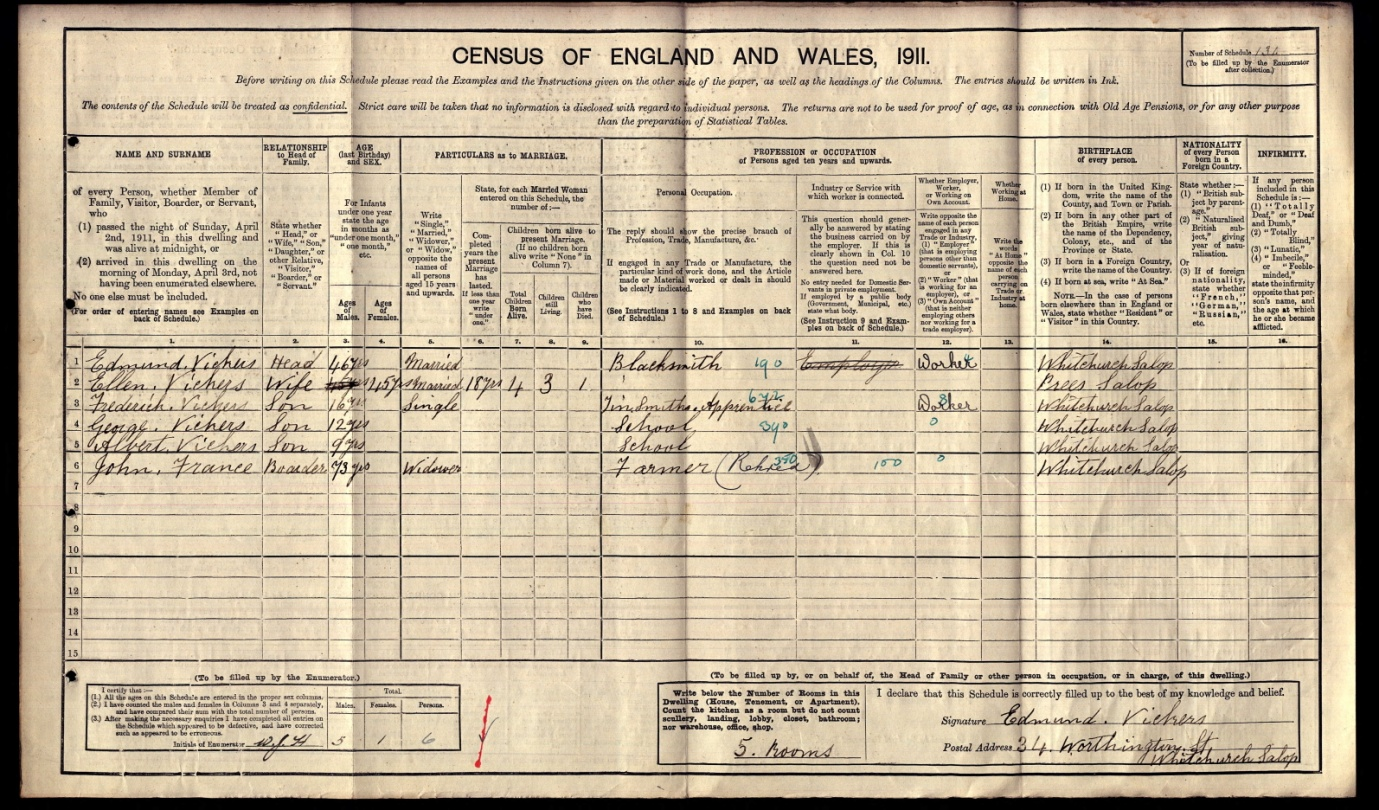 CENSUS OF ENGLAND AND WALES, 1911.
Number of Schedule 134
(To be filled up by the Enumerator
after collection.)
Before writing on this Schedule please read the Examples and the Instructions given on the other side of the paper, as well as the headings of the Columns. The entries should be written in Ink.
The contents of the Schedule will be treated as confidential. Strict care will be taken that no information is disclosed with regard to individual persons. The returns are not to be used for proof of age, as in connection with Old Age Pensions, or for any other purpose
than the preparation of Statistical Tables.
NAME AND SURNAME
of every Person, whether Member of
Family, Visitor, Boarder, or Servant,
who
(1) passed the night of Sunday, April
2nd, 1911, in this dwelling and
was alive at midnight, or
(2) arrived in this dwelling on the
morning of Monday, April 3rd, not
having been enumerated elsewhere.
No one else must be included.
(For order of entering names see Examples on
back of Schedule.)
RELATIONSHIP
to Head of
Family.
State whether
"Head," or
"Wife," "Son,"
"Daughter," or
other Relative,
"Visitor,"
"Boarder," or
"Servant."
AGE
(last Birthday)
and SEX.
For Infants
under one year
state the age
in months as
"under one month,"
"one month,"
etc.
Ages
of
Males.
Ages
of
Females.
PARTICULARS as to MARRIAGE.
Write
"Single,"
"Married,"
"Widower,"
or "Widow,"
opposite the
names of
all persons
aged 15 years
and upwards.
State, for each Married Woman
entered on this Schedule, the
number of:—
Completed
years the
present
Marriage
has
lasted.
If less than
one year
write
"under
one."
Children born alive to
present Marriage.
(If no children born
alive write "None" in
Column 7).
Total
Children
Born
Alive.
Children
still
Living.
Children
who
have
Died.
PROFESSION or OCCUPATION
of Persons aged ten years and upwards.
Personal Occupation.
The reply should show the precise branch of
Profession, Trade, Manufacture, &c.
If engaged in any Trade or Manufacture, the
particular kind of work done, and the Article
made or Material worked or dealt in should
be clearly indicated.
(See Instructions 1 to 8 and Examples on back
of Schedule.)
Industry or Service with
which worker is connected.
This question should gener-
ally be answered by stating
the business carried on by
the employer. If this is
clearly shown in Col. 10
the question need not be
answered here.
No entry needed for Domestic Ser-
vants in private employment.
If employed by a public body
(Government, Municipal, etc.)
state what body.
(See Instruction 9 and Exam-
ples on back of Schedule.)
Whether Employer,
Worker,
or Working on
Own Account.
Write opposite the
name of each person
engaged in any
Trade or Industry,
(1) "Employer"
(that is employing
persons other than
domestic servants),
or
(2) "Worker" (that
is working for an
employer), or
(3) "Own Account"
(that is neither
employing others
nor working for a
trade employer).
Whether
Working at
Home.
Write the
words
"At Home"
opposite the
name of each
person
carrying on
Trade or
Industry at
home.
BIRTHPLACE
of every person.
(1) If born in the United King-
dom, write the name of the
County, and Town or Parish.
(2) If born in any other part of
the British Empire, write
the name of the Dependency,
Colony, etc., and of the
Province or State.
(3) If born in a Foreign Country,
write the name of the Country.
(4) If born at sea, write "At Sea."
NOTE.—In the case of persons
born elsewhere than in England or
Wales, state whether "Resident" or
"Visitor" in this Country.
NATIONALITY
of every Person
born in a
Foreign Country.
State whether:—
(1) "British sub-
ject by parent-
age,"
(2) "Naturalised
British sub-
ject," giving
year of natu-
ralisation.
Or
(3) If of foreign
nationality,
state whether
"French,"
"German,"
"Russian,"
etc.
INFIRMITY.
If any person
included in this
Schedule is:—
(1) "Totally
Deaf," or "Deaf
and Dumb,"
(2) "Totally
Blind,"
(3) "Lunatic,"
(4) "Imbecile,"
or "Feeble-
minded,"
state the infirmity
opposite that per-
son's name, and
the age at which
he or she became
afflicted.
1. 2. 3. 4. 5. 6. 7. 8. 9. 10. 11. 12. 13. 14. 15. 16.
1 Edmund. Vickers Head 46yrs Married Blacksmith 190 Employe Worker Whitchurch Salop
2 Ellen. Vickers Wife 45yrs Married 18yrs 4 3 1 Prees Salop
3 Frederick. Vickers Son 16yrs Single Tin Smiths. Apprentice Worker Whitchurch Salop
4 George. Vickers Son 12yrs School 390 0 Whitchurch Salop
5 Albert. Vickers Son 9yrs School Whitchurch Salop
6 John. France Boarder 73yrs Widower Farmer (Retired) 100 0 Whitchurch Salop
7
8
9
10
11
12
13
14
15
(To be filled up by the Enumerator.)
I certify that:—
(1.) All the ages on this Schedule are entered in the proper sex columns.
(2.) I have counted the males and females in Columns 3 and 4 separately,
and have compared their sum with the total number of persons.
(3.) After making the necessary enquiries I have completed all entries on
the Schedule which appeared to be defective, and have corrected
such as appeared to be erroneous.
Initials of Enumerator
Total.
Males. Females. Persons.
5 1 6
(To be filled up by, or on behalf of, the Head of Family or other person in occupation, or in charge, of this dwelling.)
Write below the Number of Rooms in this
Dwelling (House, Tenement, or Apartment).
Count the kitchen as a room but do not count
scullery, landing, lobby, closet, bathroom;
nor warehouse, office, shop.
5. Rooms
I declare that this Schedule is correctly filled up to the best of my knowledge and belief.
Signature Edmund. Vickers
Postal Address 34. Worthington. St
Whitchurch Salop